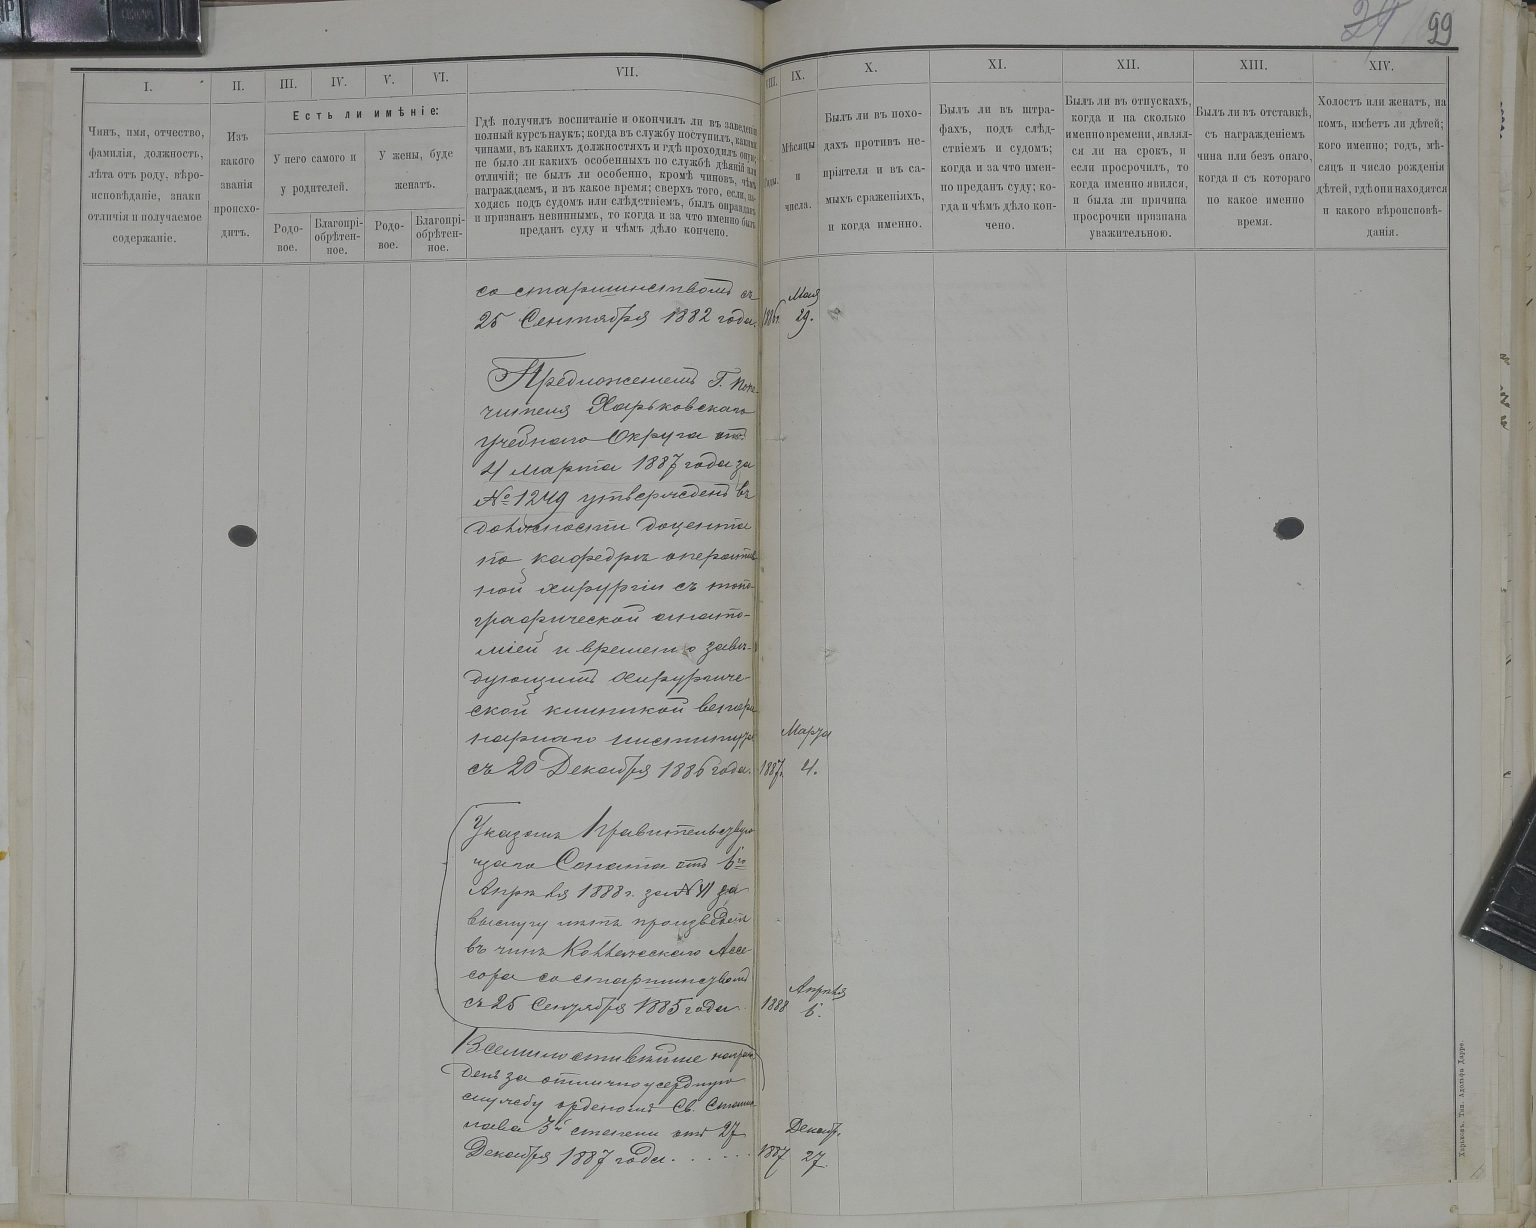 24 99
I. II. III. IV. V. VI. VII. VIII. IX. X. XI. XII. XIII. XIV.
Чинъ, имя, отчество,
фамилія, должность,
лѣта отъ роду, вѣро-
исповѣданіе, знаки
отличія и получаемое
содержаніе.
Изъ
какого
званія
происхо-
дитъ.
Есть ли имѣніе:
У него самого и
у родителей.
У жены, буде
женатъ.
Родо-
вое.
Благопрі-
обрѣтен-
ное.
Родо-
вое.
Благопрі-
обрѣтен-
ное.
Гдѣ получилъ воспитаніе и окончилъ ли въ заведеніи
полный курсъ наукъ; когда въ службу поступилъ, какими
чинами, въ какихъ должностяхъ и гдѣ проходилъ оную;
не было ли какихъ особенныхъ по службѣ дѣяній или
отличій; не былъ ли особенно, кромѣ чиновъ, чѣмъ
награждаемъ, и въ какое время; сверхъ того, если, на-
ходясь подъ судомъ или слѣдствіемъ, былъ оправданъ
и признанъ невиннымъ, то когда и за что именно былъ
преданъ суду и чѣмъ дѣло кончено.
Годы.
Мѣсяцы
и
числа.
Былъ ли въ похо-
дахъ противъ не-
пріятеля и въ са-
мыхъ сраженіяхъ,
и когда именно.
Былъ ли въ штра-
фахъ, подъ слѣд-
ствіемъ и судомъ;
когда и за что имен-
но преданъ суду; ко-
гда и чѣмъ дѣло кон-
чено.
Былъ ли въ отпускахъ,
когда и на сколько
именно времени, являл-
ся ли на срокъ, и
если просрочилъ, то
когда именно явился,
и была ли причина
просрочки признана
уважительною.
Былъ ли въ отставкѣ,
съ награжденіемъ
чина или безъ онаго,
когда и съ котораго
по какое именно
время.
Холостъ или женатъ, на
комъ, имѣетъ ли дѣтей;
кого именно; годъ, мѣ-
сяцъ и число рожденія
дѣтей, гдѣ они находятся
и какого вѣроисповѣ-
данія.
со старшинствомъ съ
25 Сентября 1882 года. 1886г. Мая 29.
Предложеніемъ Г. Попе-
чителя Харьковскаго
Учебнаго Округа отъ
4 Марта 1887 года за
№ 1249 утвержденъ въ
должности доцента
по кафедрѣ оператив
ной хирургіи съ топо-
графической анато-
міей и временно завѣ-
дующимъ Хирургиче
ской клиникой ветери
нарнаго института
съ 20 Декабря 1886 года. 1887г. Марта 4.
Указомъ Правительствую
щаго Сената отъ 6го
Апрѣля 1888 г. за № VI за
выслугу лѣтъ произведенъ
въ чинъ Коллежскаго Ассе
сора со старшинствомъ
съ 25 Сентября 1885 года. 1888 Апрѣля 6.
Всемилостивѣйше награж
денъ за отлично усердную
службу орденомъ Св. Станис
лава 3й степени отъ 27
Декабря 1887 года...... 1887 Декабр. 27.
Харьковъ. Тип. Адольфа Дарре.